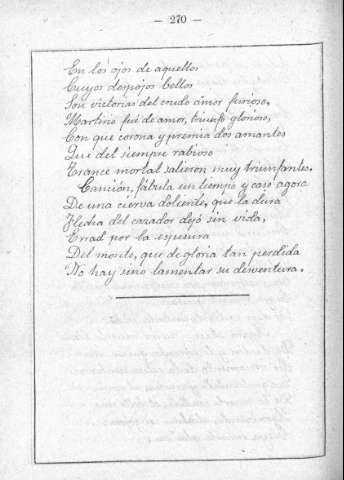 — 270 —
En los ojos de aquellos
Cuyos despojos bellos
Son victorias del crudo amor furioso,
Martirio fué de amor, triunfo glorioso,
Con que corona y premia dos amantes
Que del siempre rabioso
Trance mortal salieron muy triunfantes.
Canción, fábula un tiempo y caso agora
De una cierva doliente, que la dura
Flecha del cazador dejó sin vida,
Errad por la espesura
Del monte, que de gloria tan perdida
No hay sino lamentar su desventura.